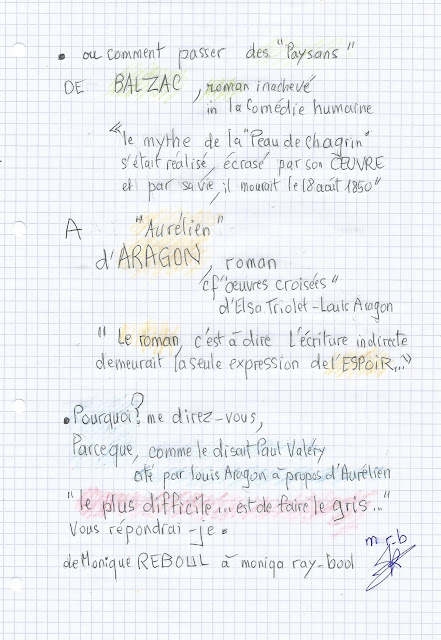 • ou comment passer des "Paysans"
DE BALZAC, roman inachevé
in la Comédie humaine
"le mythe de la "Peau de chagrin"
s'était réalisé, écrasé par son ŒUVRE
et par sa vie, il mourait le 18 août 1850"
A "Aurélien"
d'ARAGON, roman
cf "œuvres croisées"
d'Elsa Triolet-Louis Aragon
" Le roman, c'est à dire L'écriture indirecte
demeurait la seule expression de l'ESPOIR..."
• Pourquoi? me direz-vous,
Parceque, comme le disait Paul Valéry
cité par Louis Aragon à propos d'Aurélien
"le plus difficile... est de faire le gris..."
Vous répondrai-je.
m r-b
de Monique REBOUL à moniqa ray-bool